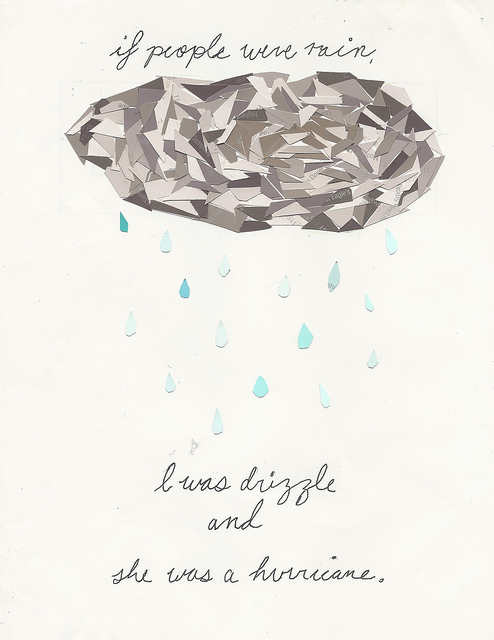 if people were rain,
I was drizzle
and
she was a hurricane.